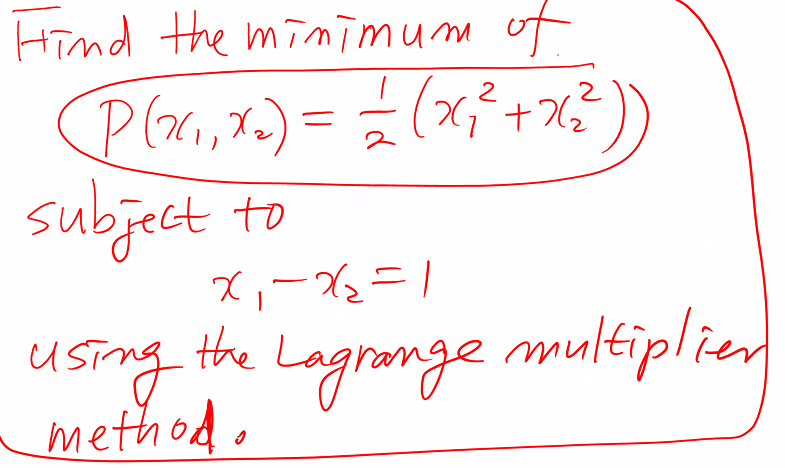 Find the minimum of
P(x₁, x₂) = 1/2 (x₁² + x₂²)
subject to
x₁ - x₂ = 1
using the Lagrange multiplier
method.